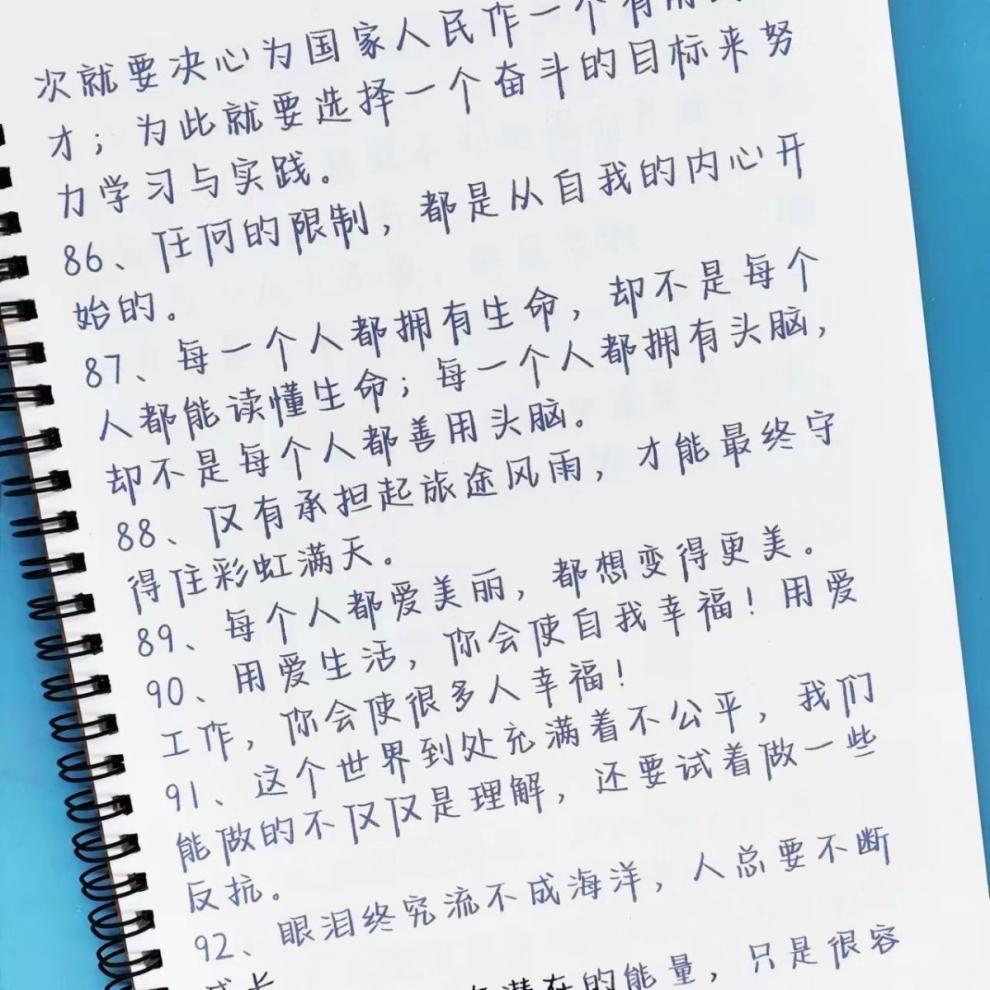 次就要决心为国家人民作一个有用
才；为此就要选择一个奋斗的目标来努
力学习与实践。
86、任何的限制，都是从自我的内心开
始的。
87、每一个人都拥有生命，却不是每个
人都能读懂生命；每一个人都拥有头脑，
却不是每个人都善用头脑。
88、仅有承担起旅途风雨，才能最终守
得住彩虹满天。
89、每个人都爱美丽，都想变得更美。
90、用爱生活，你会使自我幸福！用爱
工作，你会使很多人幸福！
91、这个世界到处充满着不公平，我们
能做的不仅仅是理解，还要试着做一些
反抗。
92、眼泪终究流不成海洋，人总要不断
成长
潜在的能量，只是很容